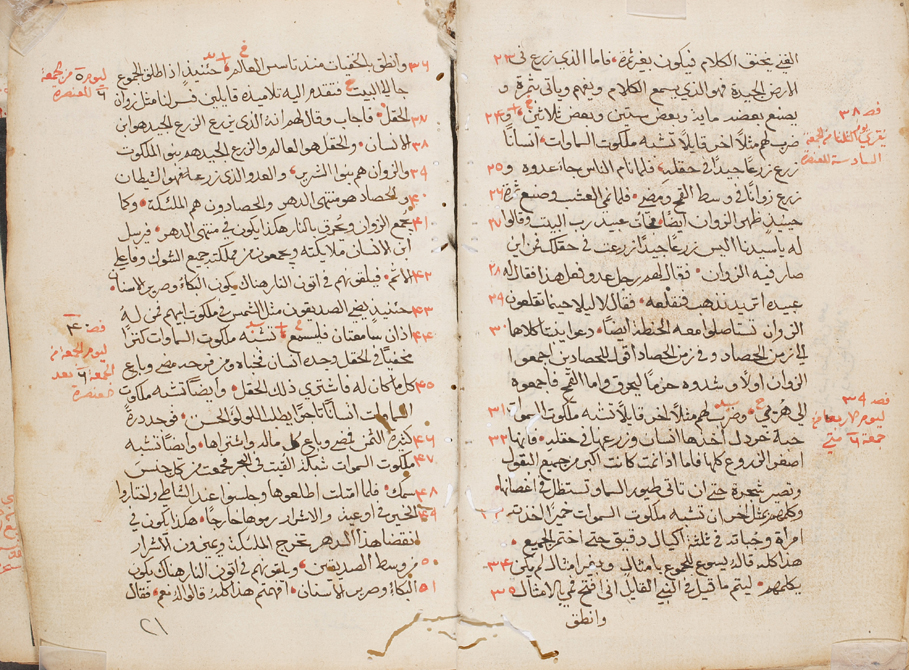 الغني يخنق الكلام فيكون بغير ثمرة • فاما الذي زرع في ٢٣
الارض الجيدة فهو الذي يسمع الكلام ويفهم وياتي بثمرة و
يصنع بعضه مايه وبعض ستين وبعض ثلاثين • و ٢٤
ضرب لهم مثلاً اخر قايلاً تشبه ملكوت السماوات انساناً
زرع زرعاً جيداً في حقله • فلما نام الناس جا عدوه و ٢٥
زرع زواناً في وسط القمح ومضى • فلما نم العشب وصنع ثمرة ٢٦
حينيذٍ ظهر الزوان ايضاً • فجات عبيد رب البيت وقالوا ٢٧
له ياسيدنا اليس زرعاً جيداً زرعت في حقلك فمن اين
صار فيه الزوان • فقال لهم رجل عدو فعل هذا فقال له ٢٨
عبيده اتريد نذهب فنقلعه • فقال لا ليلا حينما تقلعون ٢٩
الزوان تستاصلوا معه الحنطة ايضاً • دعوا ينبت كلاهما ٣٠
الى زمن الحصاد وفي زمن الحصاد اقول للحصادين اجمعوا
الزوان اولاً وشدوه حزماً ليحرق واما القمح فاجمعوه
الى هُريي • وضرب لهم مثلاً اخر قايلاً تشبه ملكوت السموات ٣١
حبة خردل اخذها انسان وزرعها في حقله • فانها ٣٢
اصغر الزروع كلها فاما اذا نمت كانت اكبر من جميع البقول
وتصير شجرة حتى ان تاتي طيور السما وتستظل في اغصانها •
وكلمهم بمثل اخر ان تشبه ملكوت السموات خميراً اخذته ٣٣
امراة وخباته في ثلثة اكيال دقيق حتى اختمر الجميع •
هذا كله قاله يسوع للجموع بامثال وبغير امثال لم يكن ٣٤
يكلمهم • ليتم ما قيل في النبي القايل اني افتح فمي بالامثال ٣٥
وانطق
فصه ٣٨
يقري يوم الثلثا من الجمعة
السادسة للعنصرة
فصه ٣٩
ليوم الاربعا من
جمعة ٦ متي
٣٦ وانطق بالخفيات منذ تاسيس العالم • حينيذٍ اذ اطلق الجموع
جا الى البيت فتقدم اليه تلاميذه قايلين فسر لنا مثل زوان
٣٧ الحقل • فاجاب وقال لهم انه الذي يزرع الزرع الجيد هو ابن
٣٨ الانسان • والحقل هو العالم والزرع الجيد هم بنو الملكوت
٣٩ والزوان هم بنو الشرير • والعدو الذي زرعه فهو الشيطان
٤٠ والحصاد هو منتهى الدهر والحصادون هم الملئكة • وكما
٤١ يُجمع الزوان ويُحرق بالنار هكذا يكون في منتهى الدهر • فيرسل
ابن الانسان ملايكته ويجمعون من مملكته جميع الشوك وفاعلي
٤٢ الاثم • فيلقونهم في اتون النار هناك يكون البكاء وصرير الاسنان •
٤٣ حينيذ يضي الصديقون مثل الشمس في ملكوت ابيهم من له
٤٤ اذان سامعتان فليسمع • تشبه ملكوت السماوات كنزاً
مخفياً في الحقل وجده انسان فخباه ومن فرحه مضى وباع
٤٥ كل ما كان له فاشترى ذلك الحقل • وايضاً تشبه ملكوت
السماوات انساناً تاجراً يطلب اللولو الحسن • فوجد درة
٤٦ كثيرة الثمن فمضى وباع كل ماله واشتراها • وايضاً تشبه
٤٧ ملكوت السموات شبكة القيت في البحر فجمعت من كل جنس
٤٨ سمك • فلما امتلت اطلعوها وجلسوا عند الشاطي واختاروا
٤٩ الخير في اوعية والاشرار رموها خارجاً • هكذا يكون في
انقضا هذا الدهر تخرج الملئكة ويميزون الاشرار
٥٠ من وسط الصديقين • ويلقونهم في اتون النار هناك يكون
٥١ البكاء وصرير الاسنان • افهمتم هذا كله قالوا له نعم • فقال
ليوم ٥ من الجمعة
٦ للعنصرة
فصه ٤٠
ليوم الجمعة من
الجمعة ٦ بعد
عنصرة
٢١